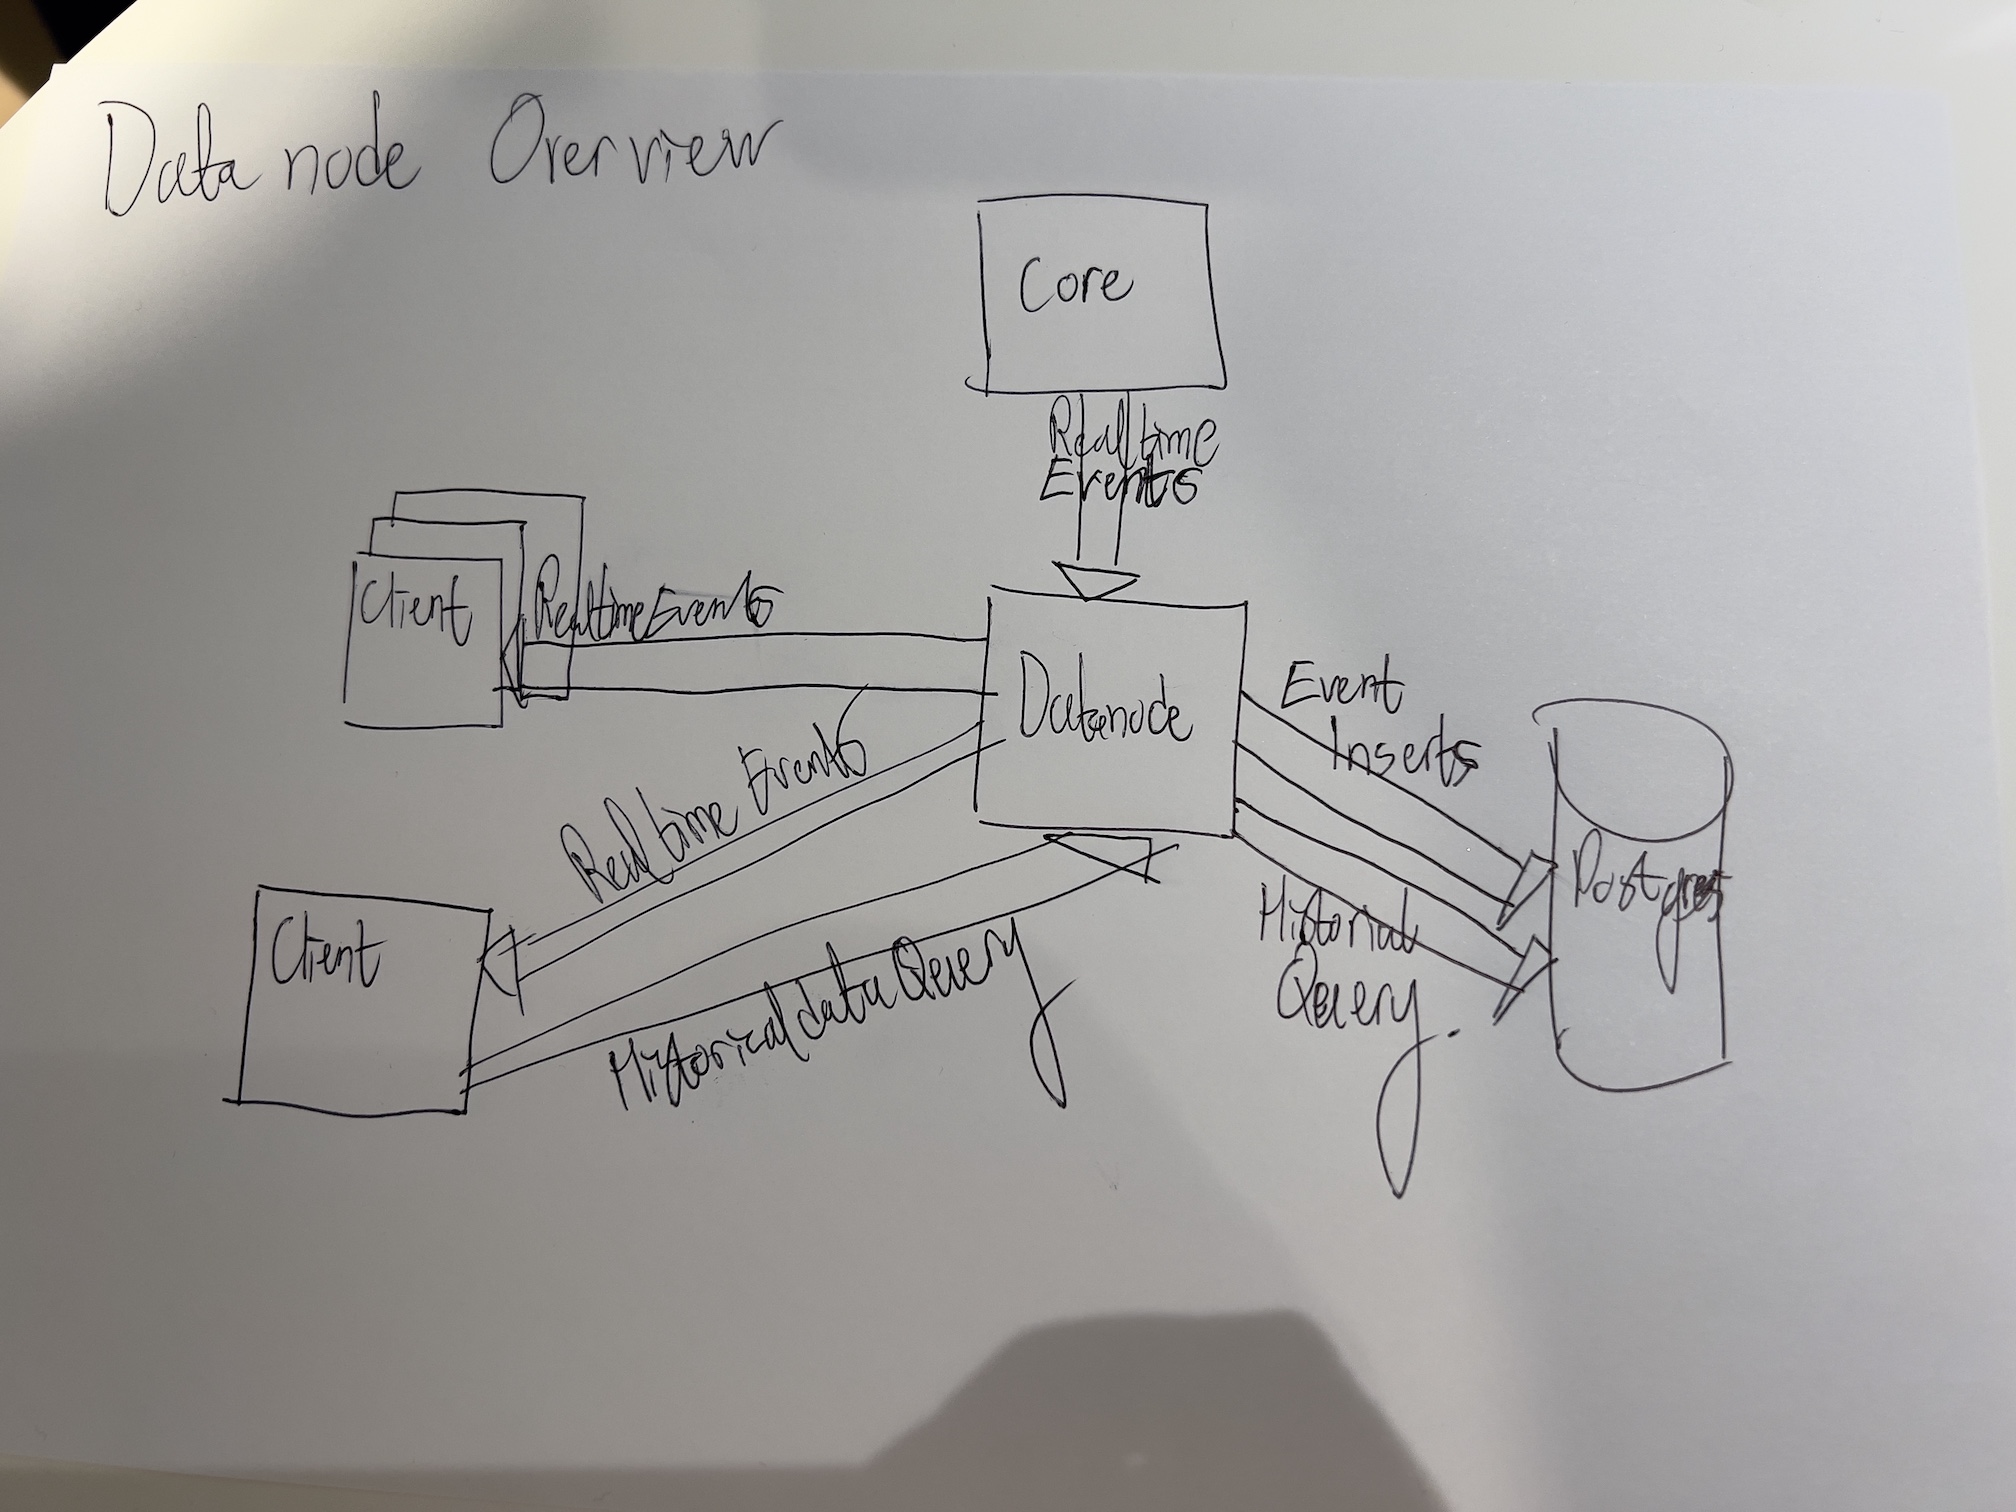 Data node Overview
Core
Realtime
Events
Client
Realtime Events
Datanode
Event
Inserts
Realtime Events
Postgres
Client
Historical data Query
Historial
Query.